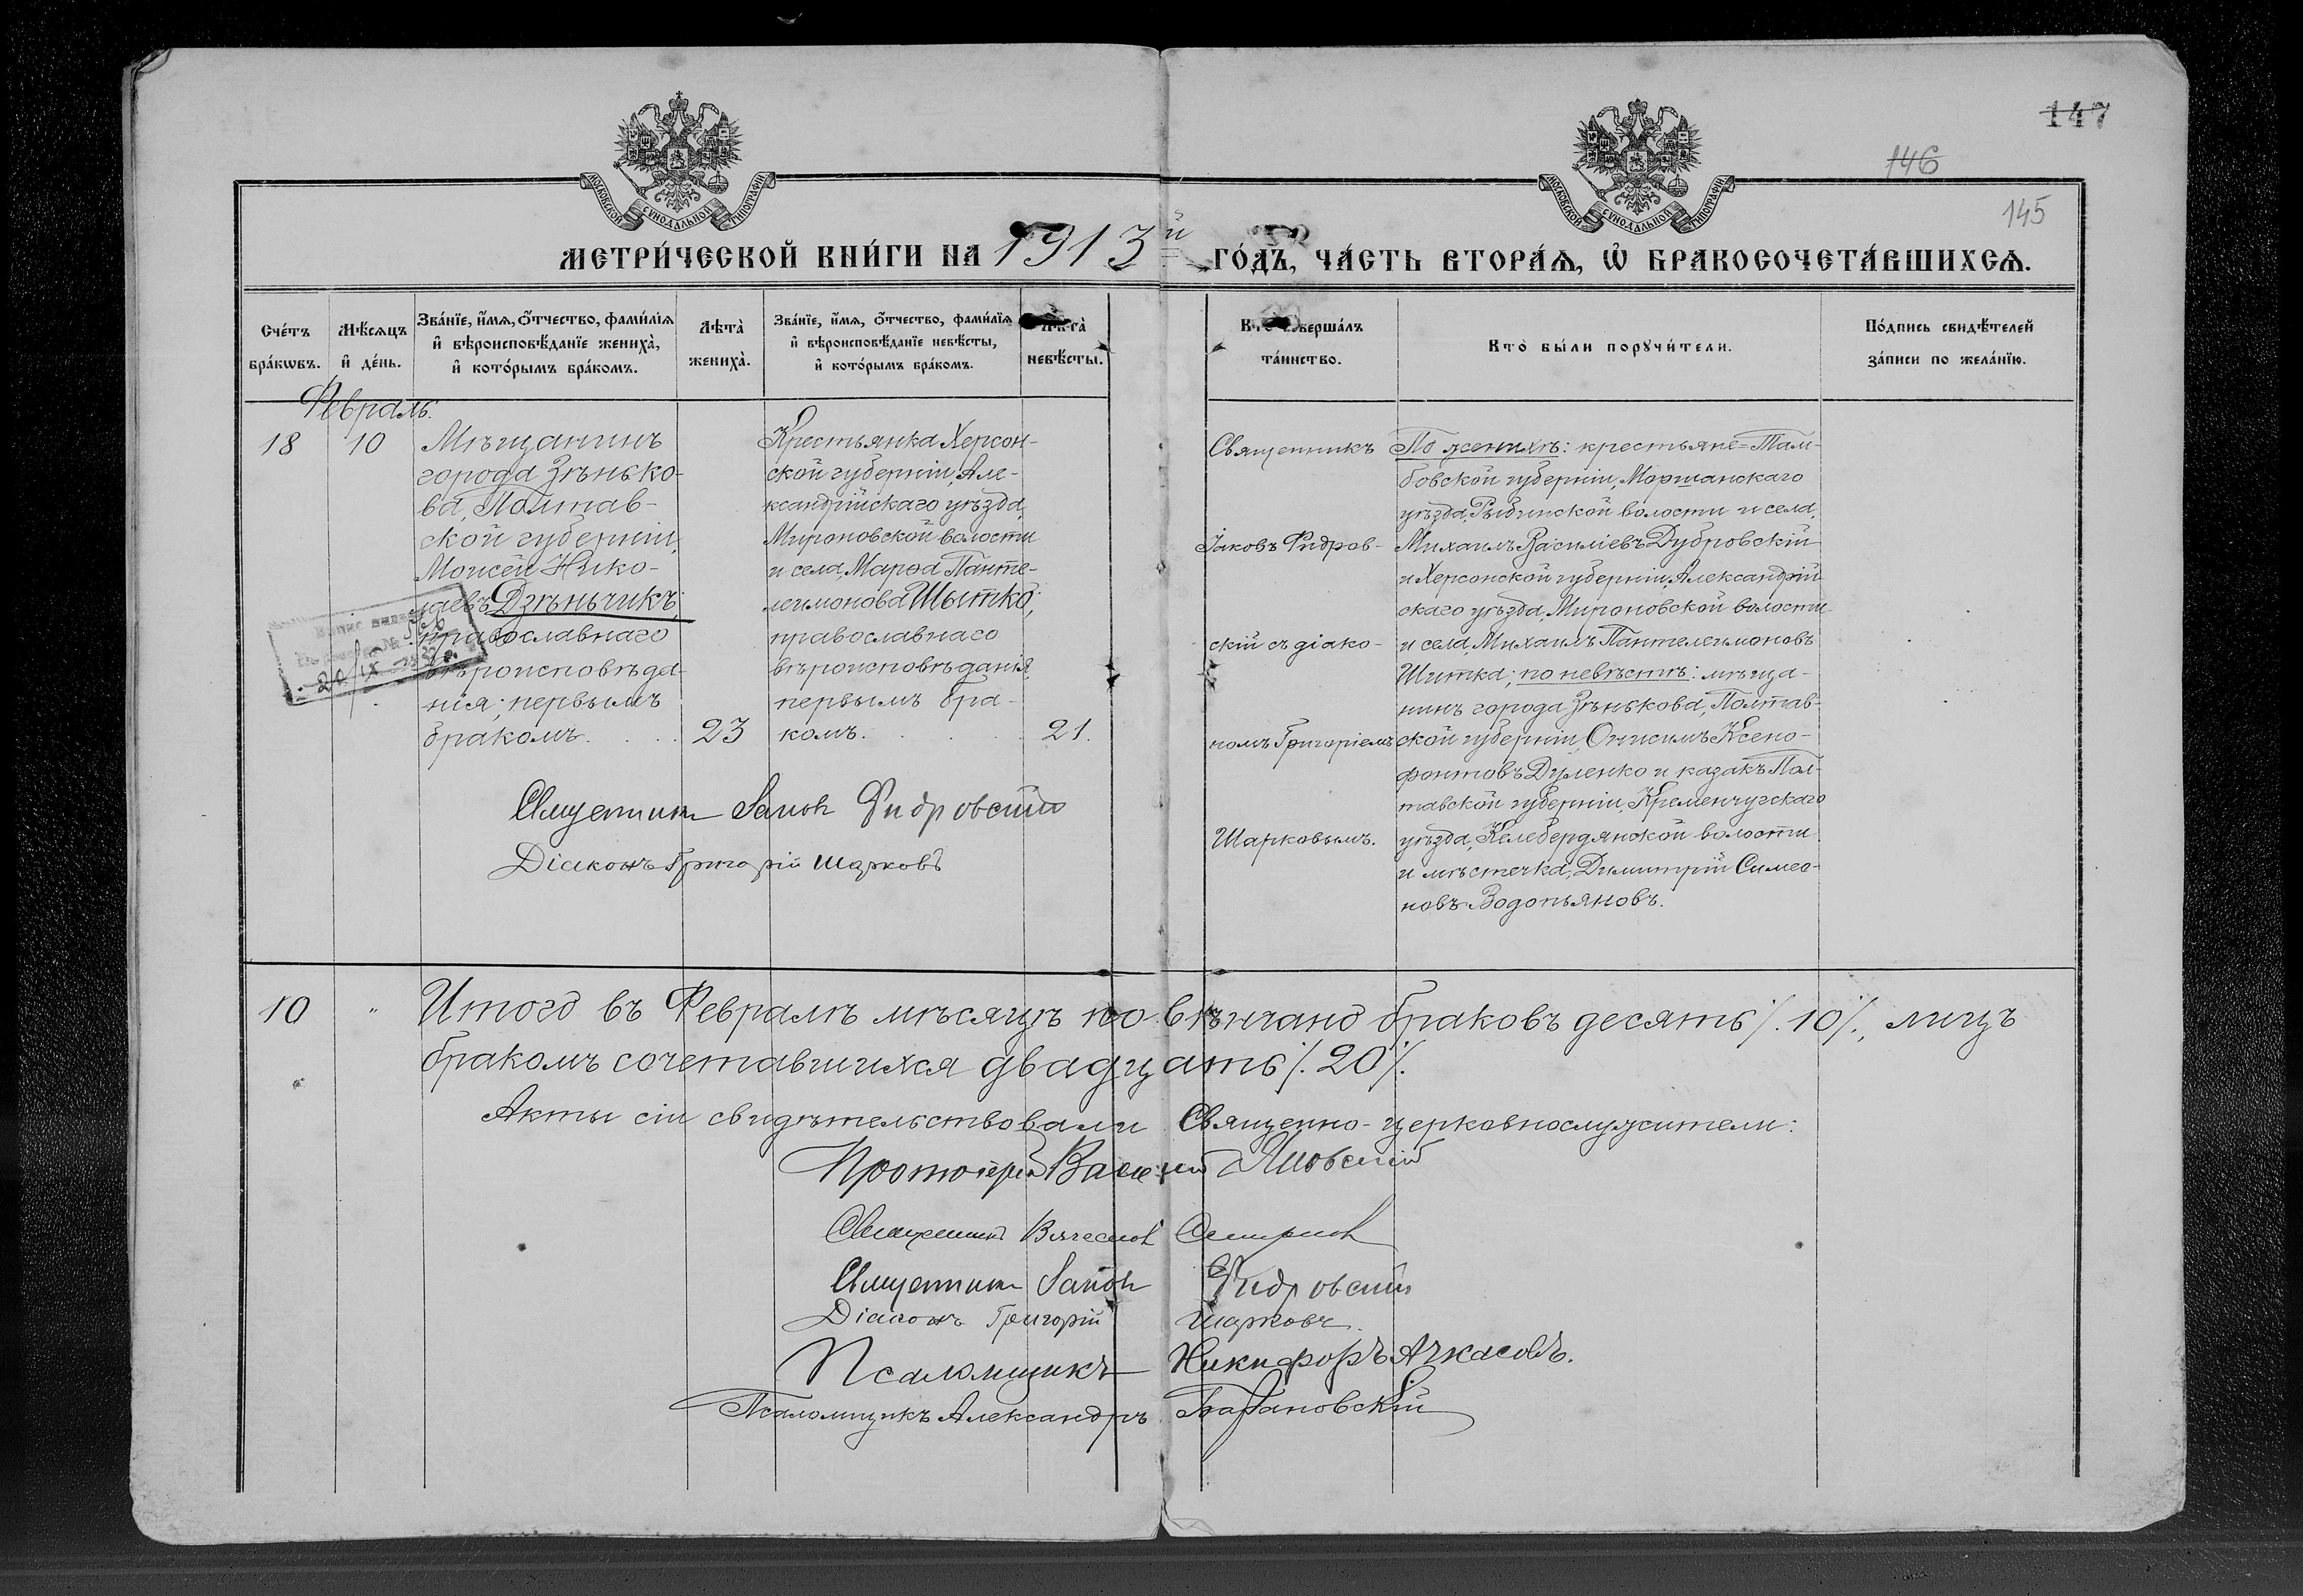 147
146
145
МОСКОВСКОЙ СУНОДАЛЬНОЙ ТИПОГРАФІИ
МОСКОВСКОЙ СУНОДАЛЬНОЙ ТИПОГРАФІИ
МЕТРИ́ЧЕСКОЙ КНИ́ГИ НА 1913й ГО́ДЪ, ЧА́СТЬ ВТОРА́Ѧ, Ѡ҆ БРАКОСОЧЕТА́ВШИХСѦ.
Сче́тъ бра́кѡвъ.
Мѣ́сѧцъ и҆ де́нь.
Зва́нїе, и҆́мѧ, ѻ҆́тчество, фами́лїѧ и҆ вѣроисповѣ́данїе жениха̀, и҆ кото́рымъ бра́комъ.
Лѣта̀ жениха̀.
Зва́нїе, и҆́мѧ, ѻ҆́тчество, фами́лїѧ и҆ вѣроисповѣ́данїе невѣ́сты, и҆ кото́рымъ бра́комъ.
Лѣта̀ невѣ́сты.
Кто̀ соверша́лъ та́инство.
Кто̀ бы́ли порꙋчи́тели.
По́дпись свидѣ́телей за́писи по жела́нїю.
Февраль.
18
10
Мѣщанинъ
города Зѣнько-
ва, Полтав-
ской губерніи,
Моисей Нико-
лаевъ Дзѣньчикъ;
православнаго
вѣроисповѣда-
нія; первымъ
бракомъ.
23
Крестьянка Херсон-
ской губерніи, Але-
ксандрійскаго уѣзда,
Мироновской волости
и села, Марѳа Панте-
леимонова Шытко;
православнаго
вѣроисповѣданія,
первымъ бра-
комъ.
21.
Священникъ
Іаковъ Фидров-
скій съ діако-
номъ Григоріемъ
Шарковымъ.
По женихѣ: крестьяне=Там-
бовской губерніи, Моршанскаго
уѣзда, Рыбинской волости и села,
Михаилъ Василіевъ Дубровскій
и Херсонской губерніи, Александрій-
скаго уѣзда, Мироновской волости
и села, Михаилъ Пантелеимоновъ
Шитка; по невѣстѣ: мѣща-
нинъ города Зѣнькова, Полтав-
ской губерніи, Онисимъ Ксено-
фонтовъ Дуленко и казакъ Пол-
тавской губерніи, Кременчугскаго
уѣзда, Келебердянской волости
и мѣстечка, Димитрій Симео-
новъ Водопьяновъ.
20/IX
Священник Іаков Фидровскій
Діаконъ Григорій Шарковъ
10
"
Итого въ Февралѣ мѣсяцѣ повѣнчано браковъ десять /. 10 /., лицъ
бракомъ сочетавшихся двадцать /. 20 /.
Акты сіи свидѣтельствовали Священно-церковнослужители:
Протоіерей Василій Яновскій
Священникъ Вячеслов Смирнов
Священник Іаков Фидровскій
Діаконъ Григорій Шарковъ
Псаломщикъ Никифоръ Ачкасовъ.
Псаломщикъ Александръ Барановскій